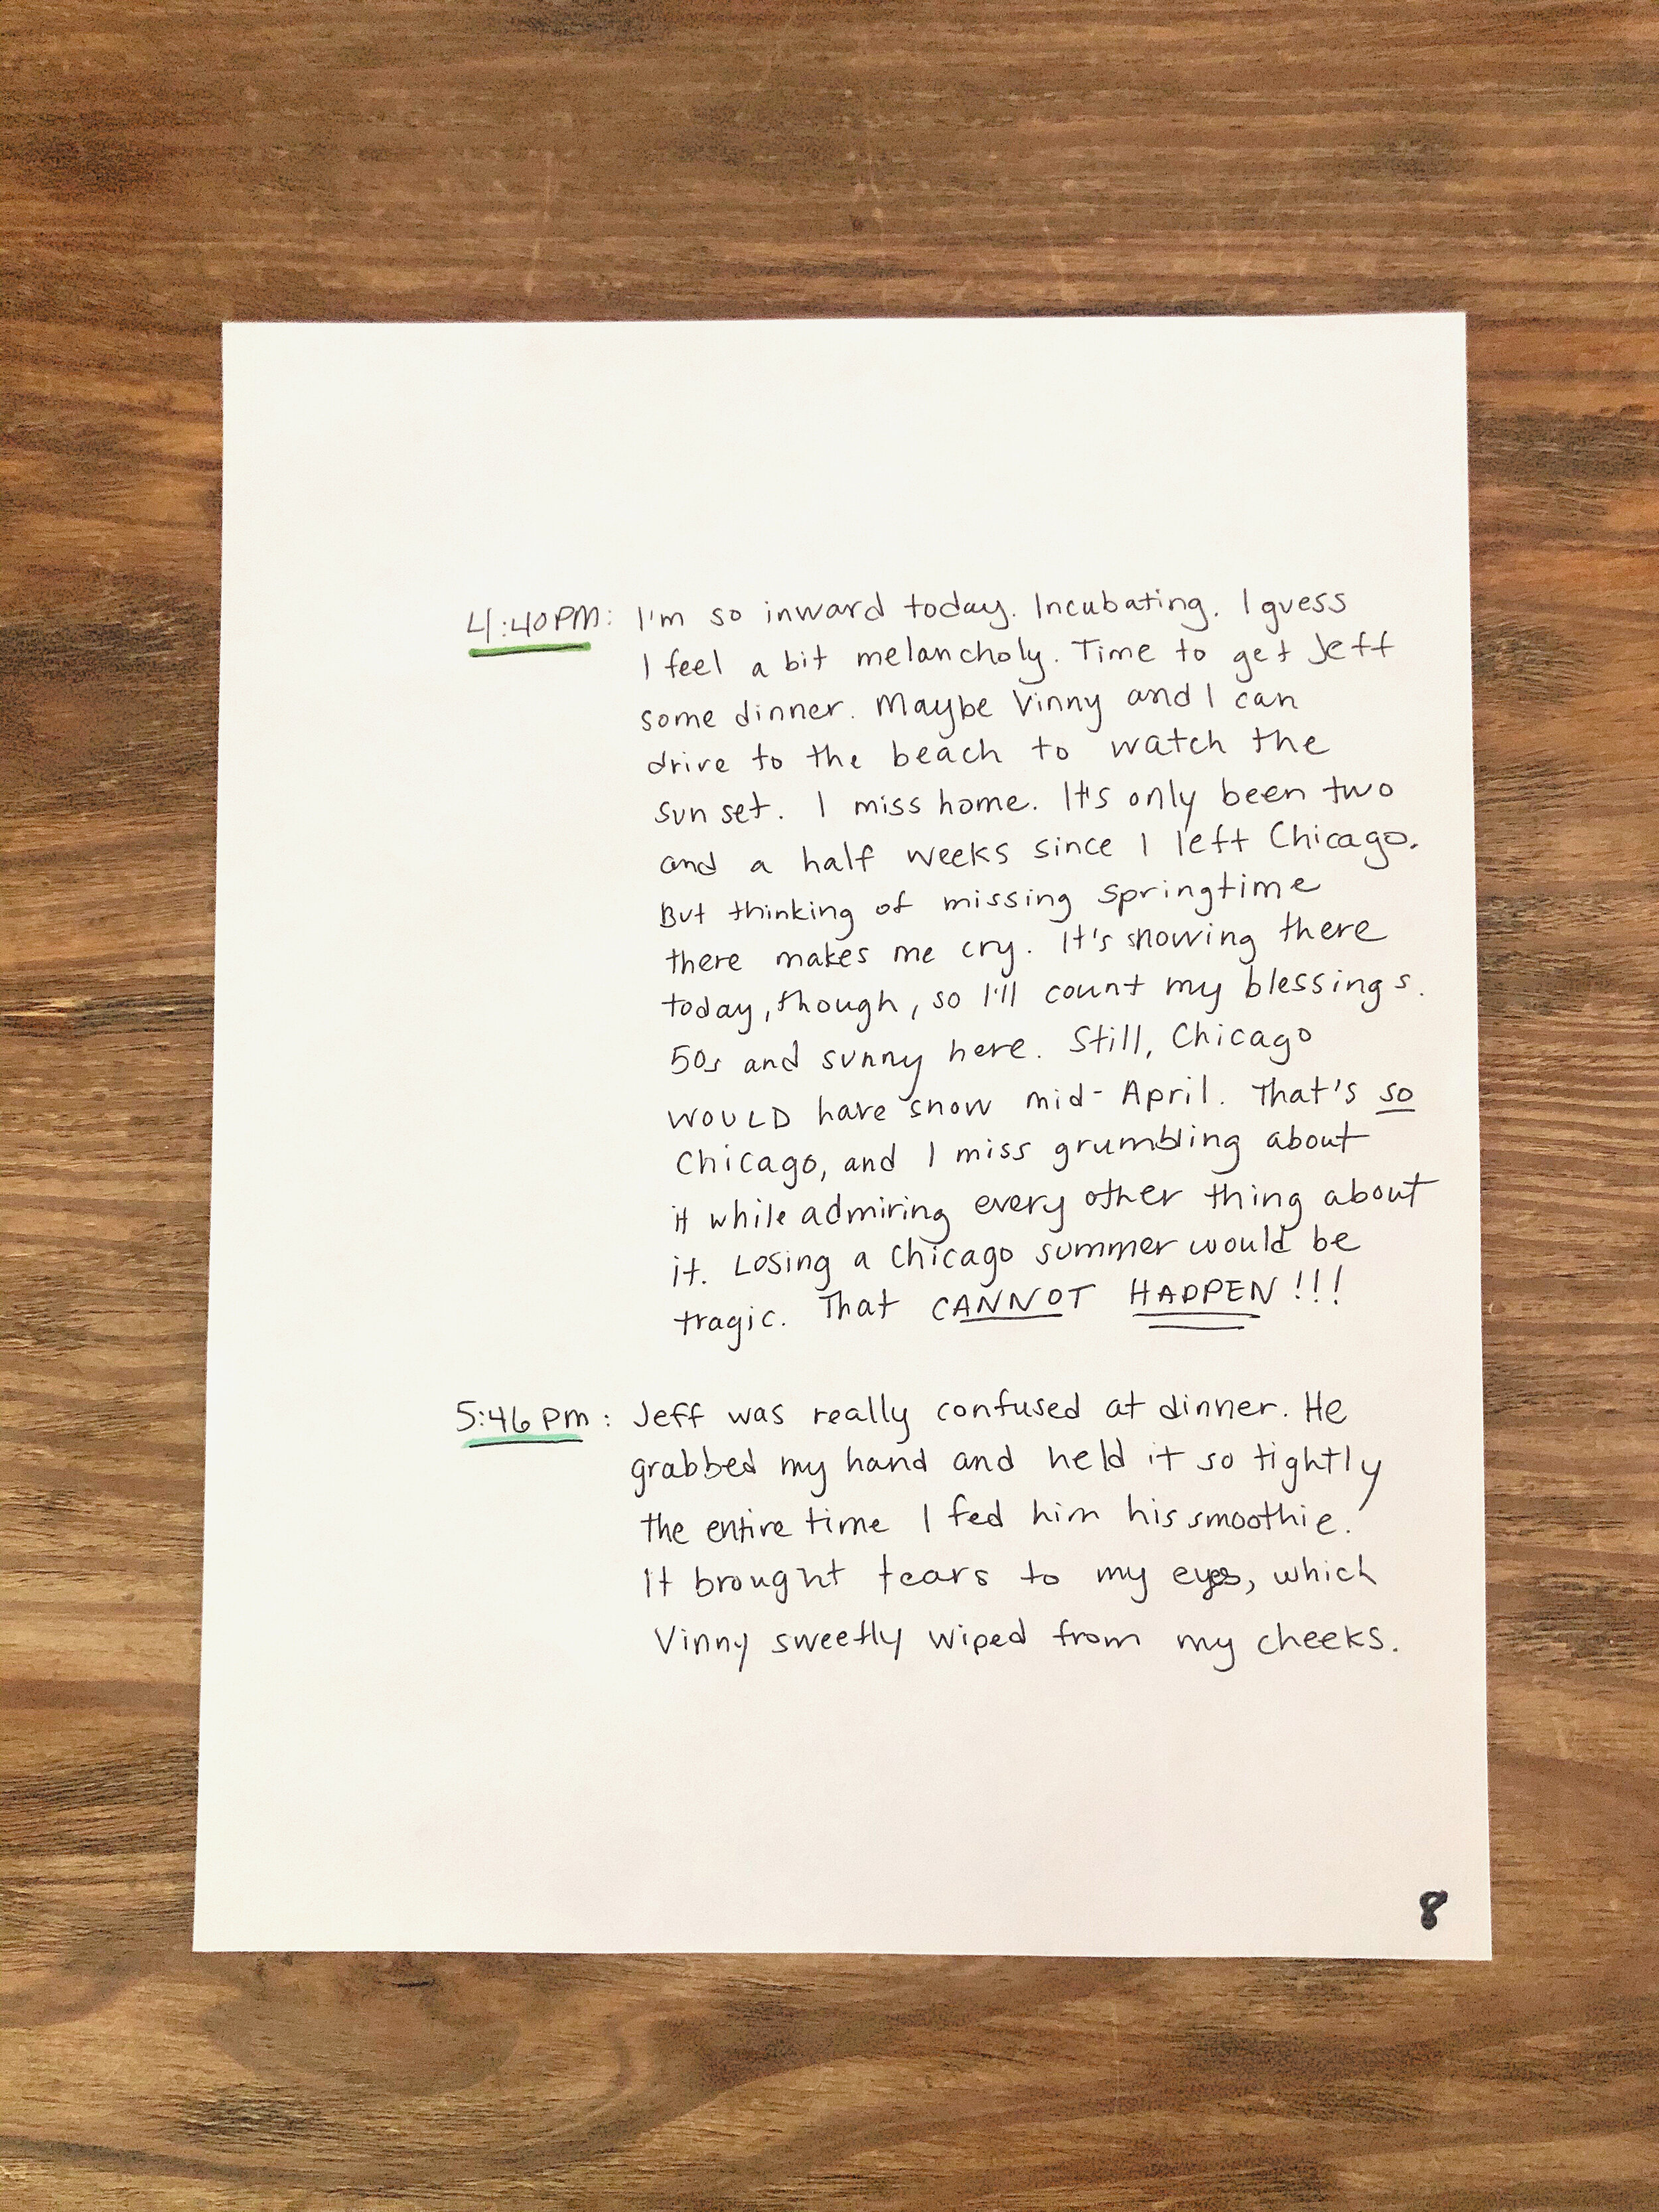 4:40PM: I'm so inward today. Incubating. I guess
I feel a bit melancholy. Time to get Jeff
some dinner. Maybe Vinny and I can
drive to the beach to watch the
sunset. I miss home. It's only been two
and a half weeks since I left Chicago.
But thinking of missing springtime
there makes me cry. It's snowing there
today, though, so I'll count my blessings.
50s and sunny here. Still, Chicago
WOULD have snow mid-April. That's so
Chicago, and I miss grumbling about
it while admiring every other thing about
it. Losing a Chicago summer would be
tragic. That CANNOT HAPPEN!!!
5:46 PM: Jeff was really confused at dinner. He
grabbed my hand and held it so tightly
the entire time I fed him his smoothie.
It brought tears to my eyes, which
Vinny sweetly wiped from my cheeks.
8